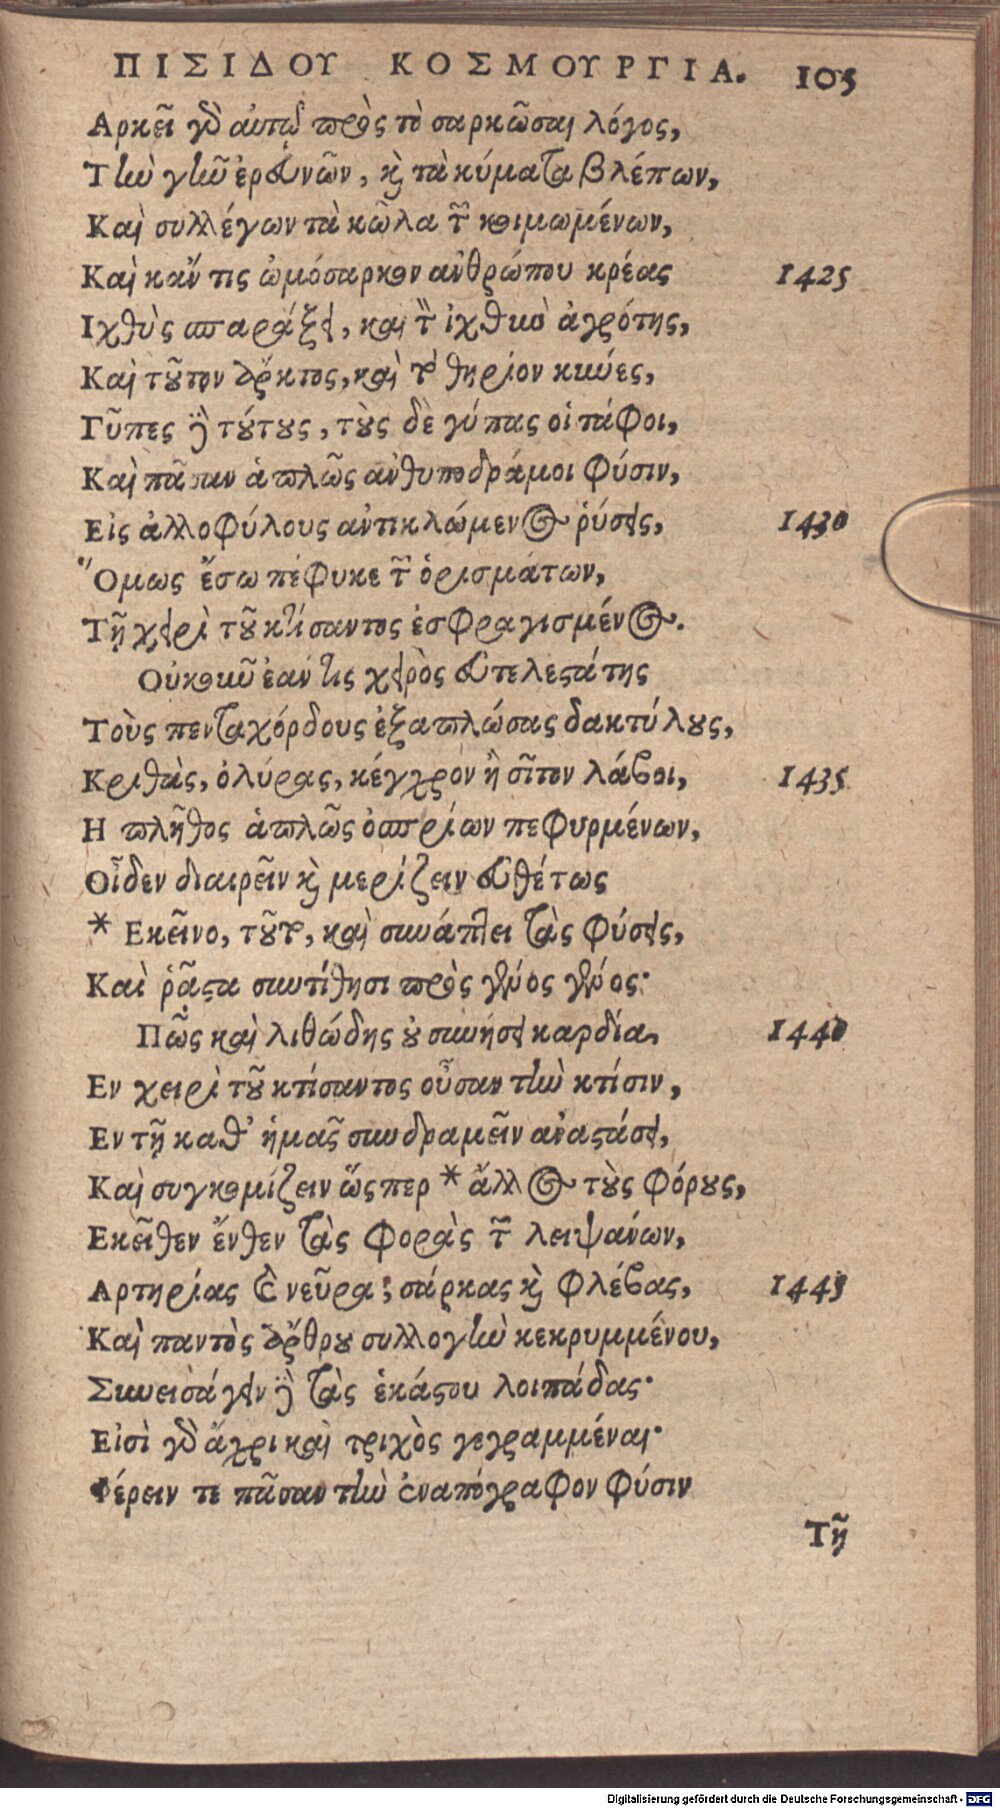 ΠΙΣΙΔΟΥ ΚΟΣΜΟΥΡΓΙΑ. 105
Αρκεῖ γὸ αὐτῷ πρὸς τὸ σαρκῶσαι λόγος,
Τὴν γῆν ἐρευνῶν, κὶ τὰ κύματα βλέπων,
Καὶ συλλέγων τὰ κῶλα τῶν κοιμωμένων,
Καὶ κἄν τις ὠμόσαρκον ἀνθρώπου κρέας 1425
Ιχθὺς σπαράξει, καὶ τὸν ἰχθιὼ ἀγρότης,
Καὶ τοῦτον ἄρκτος, καὶ τὸ θηρίον κύνες,
Γῦπες ἢ τούτους, τοὺς δὲ γύπας οἱ τάφοι,
Καὶ πᾶσαν ἁπλῶς ἀνθυποδράμοι φύσιν,
Εἰς ἀλλοφύλους ἀντικλώμενος ῥύσεις, 1430
Ὅμως ἔσω πέφυκε τῶν ὁρισμάτων,
Τῇ χειρὶ τοῦ κτίσαντος ἐσφραγισμένος.
Οὐκοιῦ ἐάν τις χειρὸς εὐτελεστάτης
Τοὺς πενταχόρδους ἐξαπλώσας δακτύλους,
Κριθὰς, ὀλύρας, κέγχρον ἢ σῖτον λάβοι, 1435
Η πλῆθος ἁπλῶς ὀσπρίων πεφυρμένων,
Οἶδεν διαιρεῖν κὶ μερίζειν εὐθέτως
* Εκεῖνο, τοῦτο, καὶ συνάπτει τὰς φύσεις,
Καὶ ῥᾷστα συντίθησι πρὸς γένος γένος·
Πῶς καὶ λιθώδης οὐ συνήσει καρδία, 1440
Εν χειρὶ τοῦ κτίσαντος οὖσαν τὴν κτίσιν,
Εν τῇ καθ' ἡμᾶς συνδραμεῖν ἀναστάσει,
Καὶ συγκομίζειν ὥσπερ * ἄλλος τοὺς φόρους,
Εκεῖθεν ἔνθεν τὰς φορὰς τῶν λειψάνων,
Αρτηρίας καὶ νεῦρα, σάρκας κὶ φλέβας, 1445
Καὶ παντὸς ἄρθρου συλλογὴν κεκρυμμένου,
Συνεισάγειν ἢ τὰς ἑκάστου λοιπάδας·
Εἰσὶ γὸ ἄχρι καὶ τριχὸς γεγραμμέναι·
Φέρειν τε πᾶσαν τὴν ἐναπόγραφον φύσιν
Τῇ
Digitalisierung gefördert durch die Deutsche Forschungsgemeinschaft - DFG